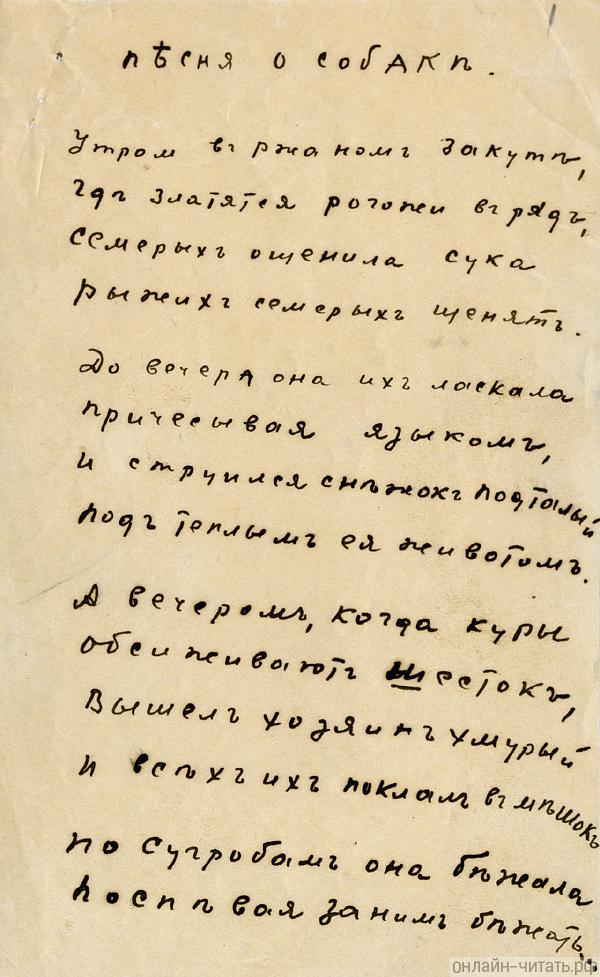 Пѣсня о собакѣ.
Утромъ въ ржаномъ закутѣ,
Гдѣ златятся рогожи въ рядъ,
Семерыхъ ощенила сука
Рыжихъ семерыхъ щенятъ.
До вечера она ихъ ласкала
Причесывая языкомъ,
И струился снѣжокъ подталый
Подъ теплымъ ея животомъ.
А вечеромъ, когда куры
Обсиживаютъ шестокъ,
Вышелъ хозяинъ хмурый
И всѣхъ ихъ поклалъ въ мѣшокъ
По сугробамъ она бѣжала
Поспѣвая за нимъ бѣжать..
онлайн-читать.рф